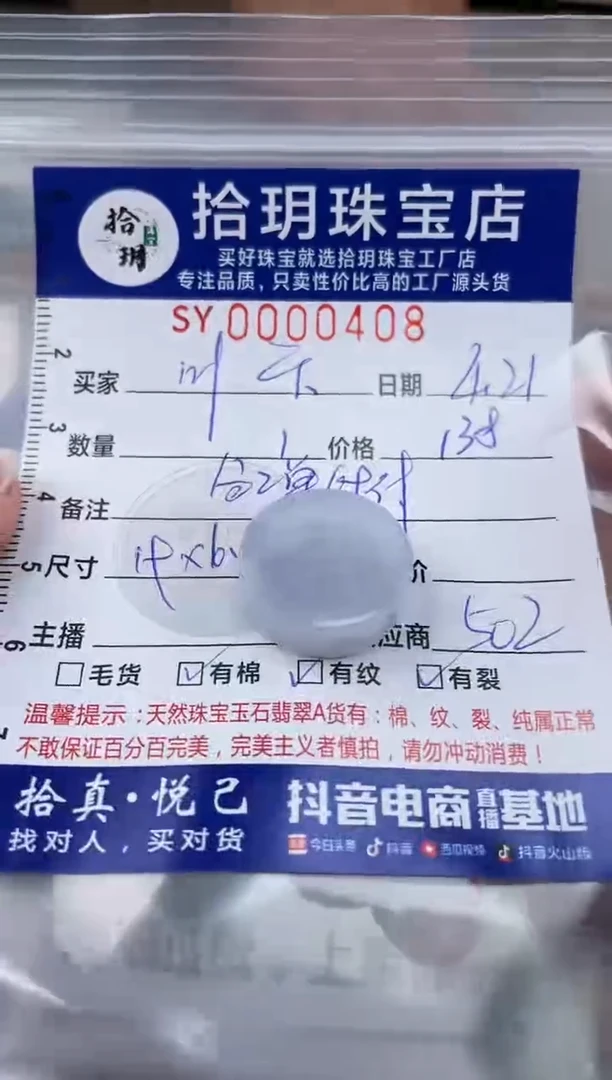 拾玥
拾玥珠宝店
买好珠宝就选拾玥珠宝工厂店
专注品质，只卖性价比高的工厂源头货
SY 0000408
买家 日期 4.21
数量 1 价格 138
备注
尺寸 价
主播 应商 502
毛货 有棉 有纹 有裂
温馨提示：天然珠宝玉石翡翠A货有：棉、纹、裂、纯属正常
不敢保证百分百完美，完美主义者慎拍，请勿冲动消费！
拾真·悦己 抖音电商直播基地
找对人，买对货 今日头条 抖音 西瓜视频 抖音火山版
2
3
4
5
6
7